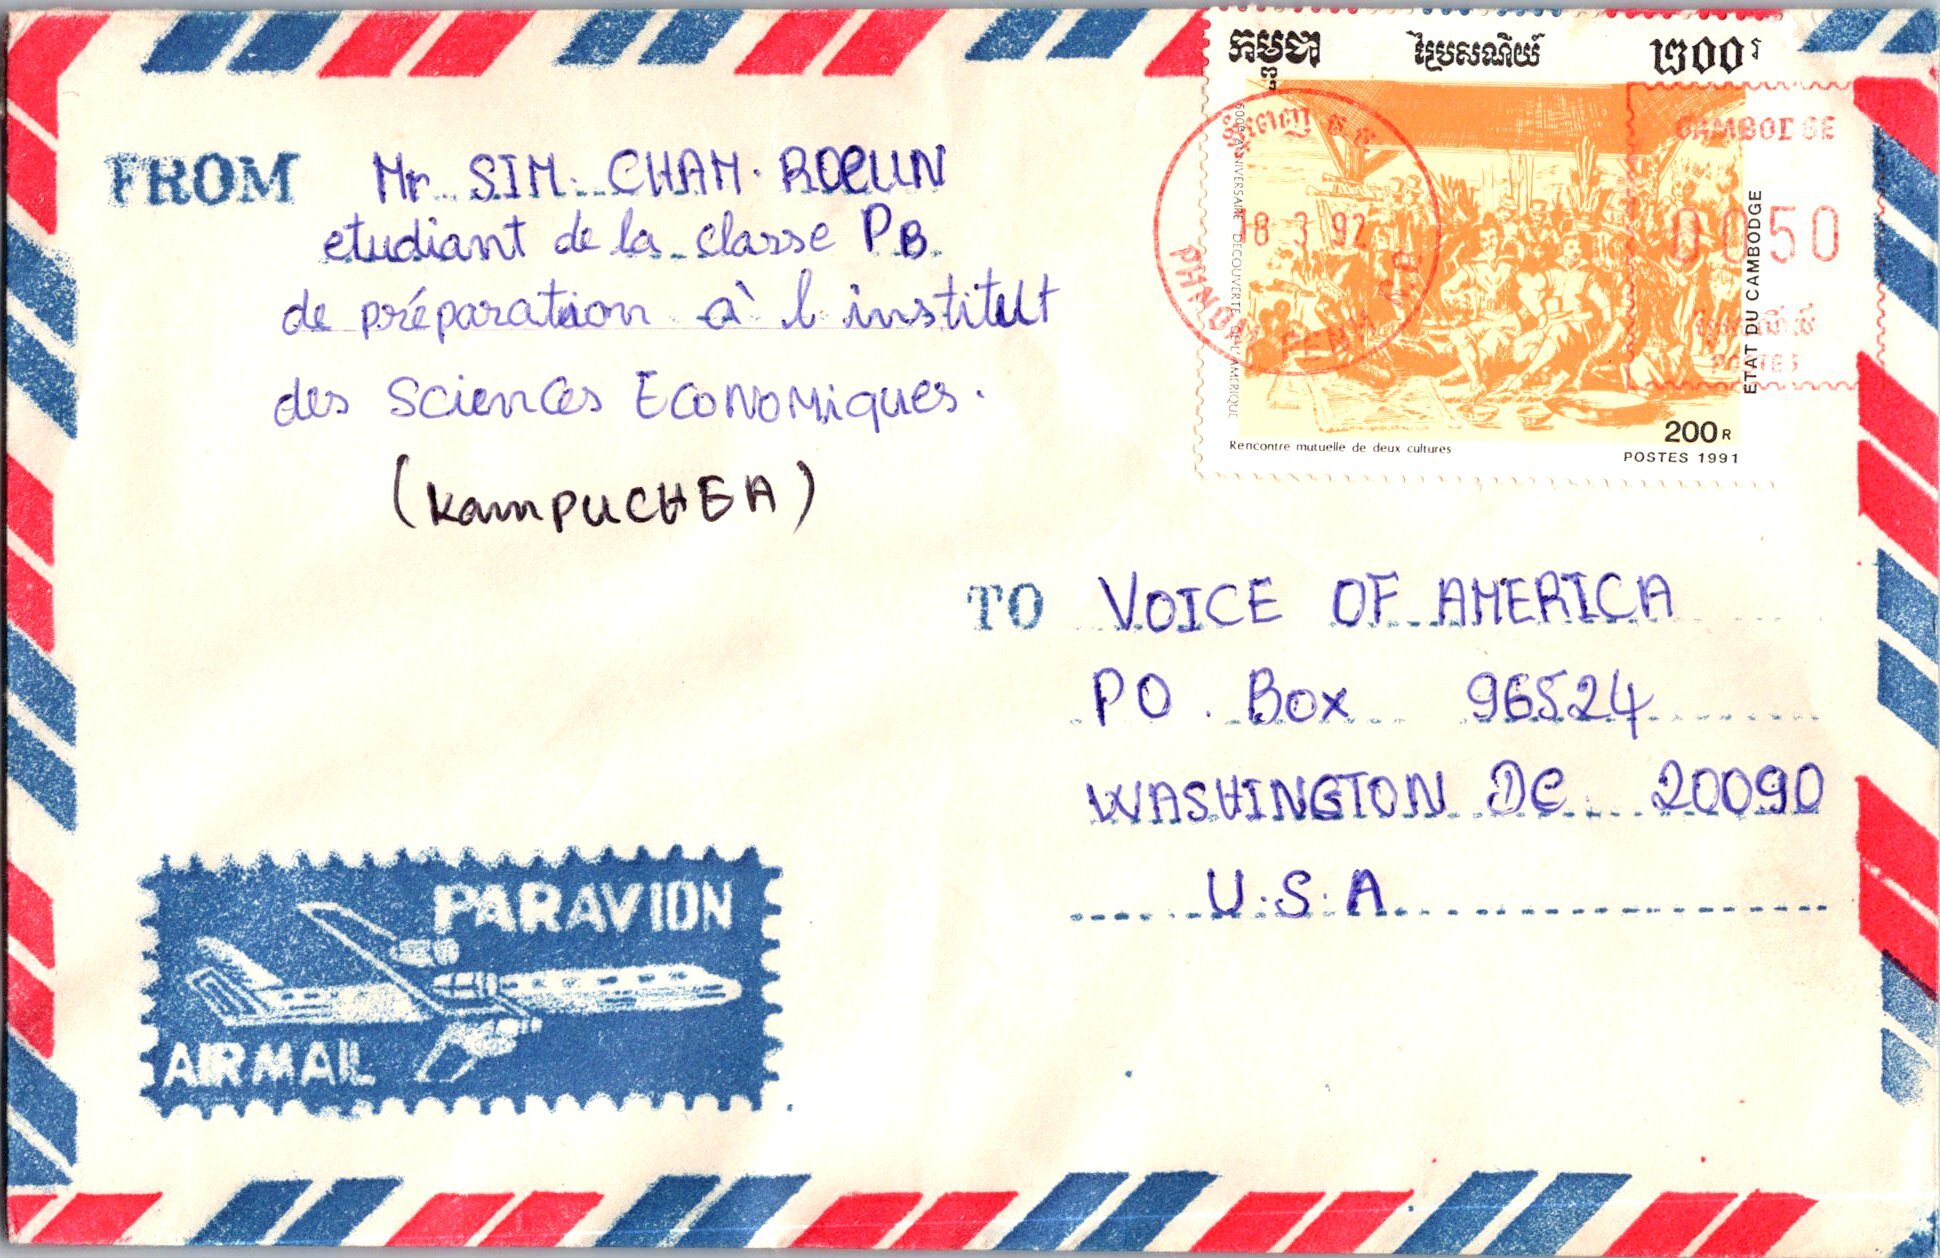 FROM Mr SIM. CHAM. ROEUN
etudiant de la classe PB.
de préparation à l'institut
des Sciences Economiques.
(KamPUCHEA)
កម្ពុជា ប្រៃសណីយ៍ ២០០រ
500e ANNIVERSAIRE DECOUVERTE DE L'AMERIQUE
ETAT DU CAMBODGE
Rencontre mutuelle de deux cultures
200R
POSTES 1991
ភ្នំពេញ
18 3 92
PHNOM PENH
CAMBODGE
0050
POSTES
TO VOICE OF AMERICA
PO. Box 96524
WASHINGTON DC 20090
U.S.A
PAR AVION
AIR MAIL